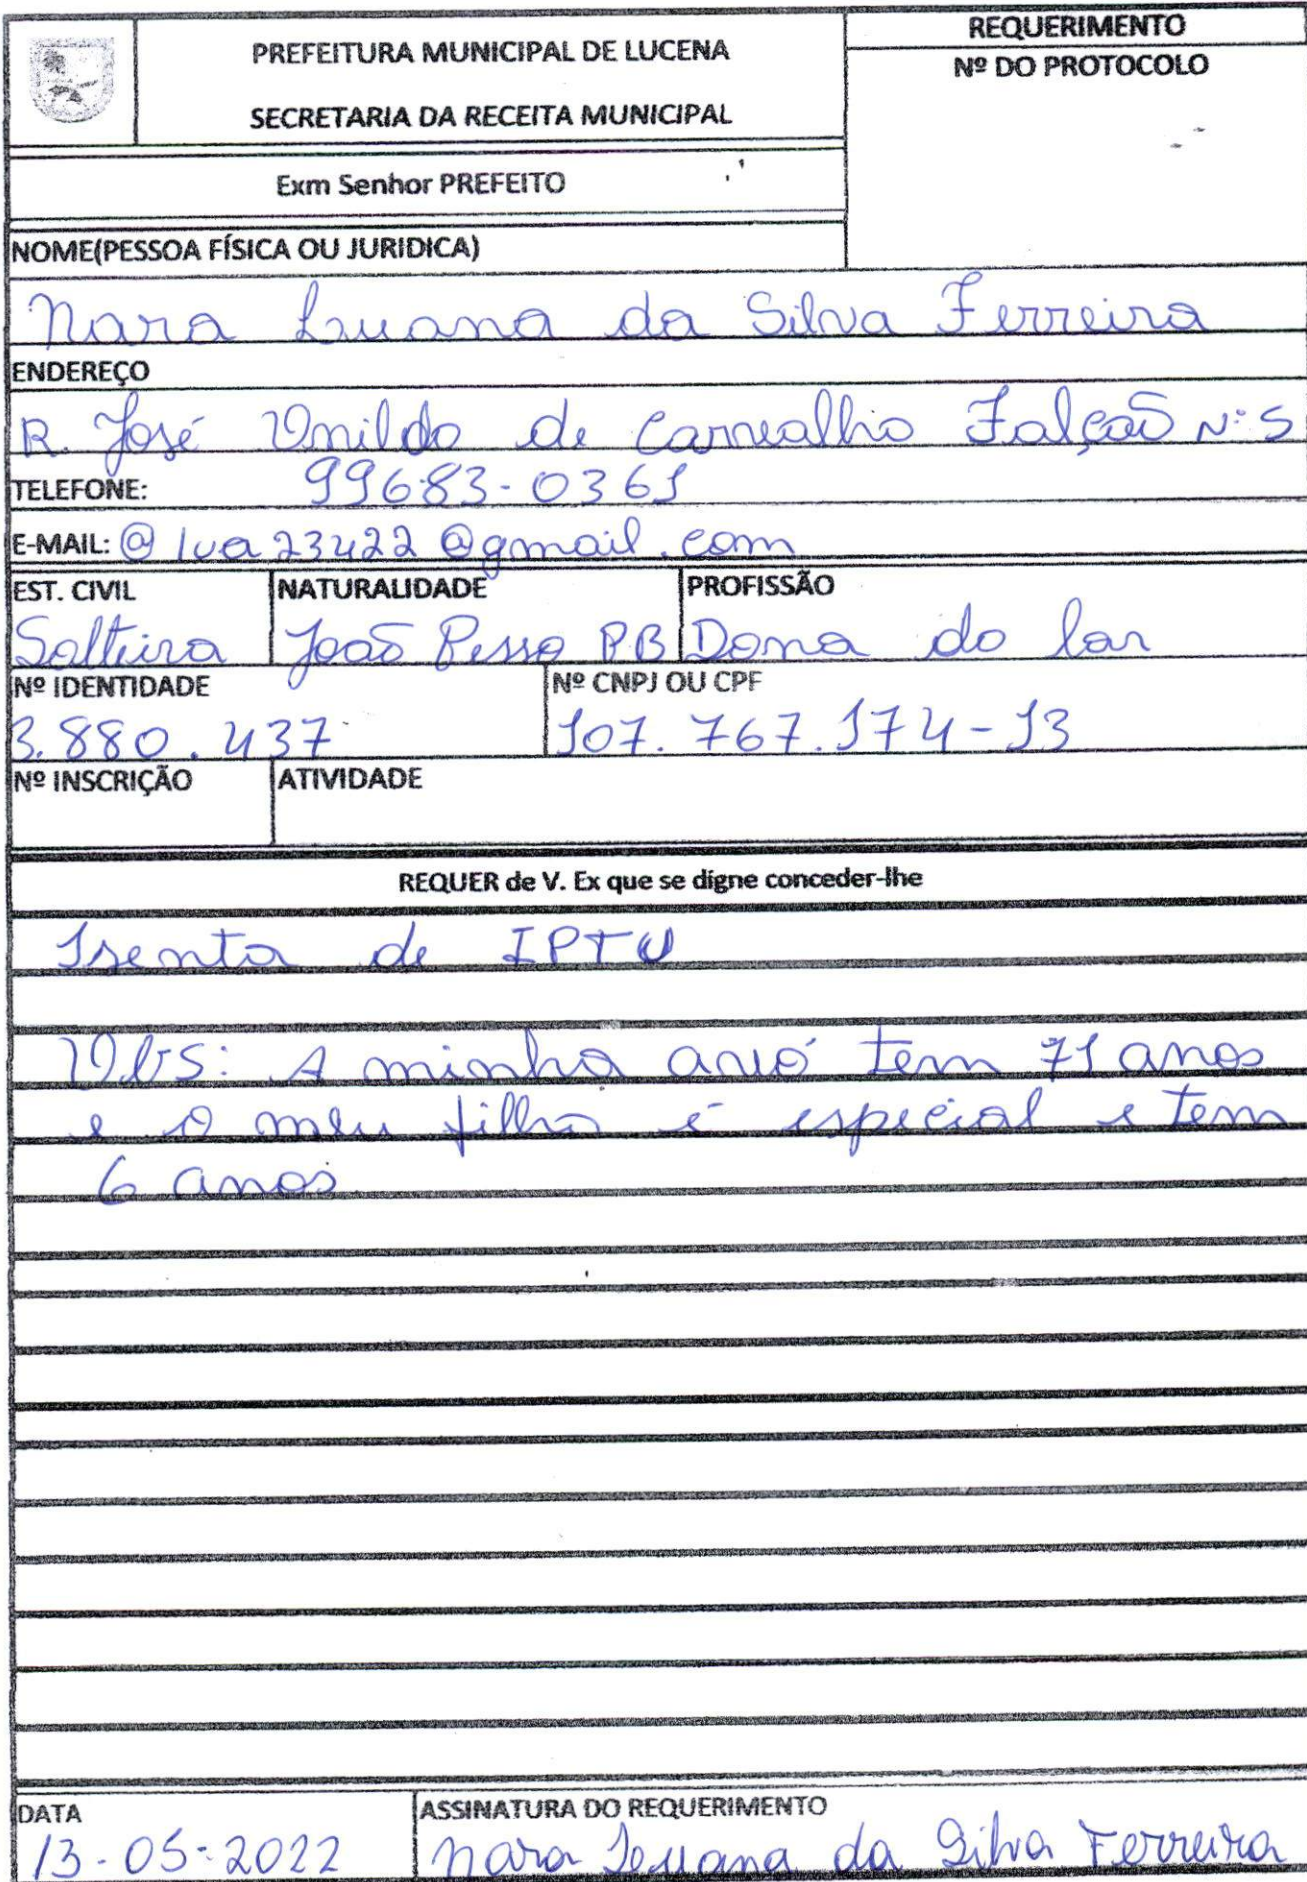 PREFEITURA MUNICIPAL DE LUCENA
SECRETARIA DA RECEITA MUNICIPAL
REQUERIMENTO
Nº DO PROTOCOLO
Exm Senhor PREFEITO
NOME(PESSOA FÍSICA OU JURIDICA)
Nara Luana da Silva Ferreira
ENDEREÇO
R. José Onildo de Carvalho Falcão N: 5
TELEFONE: 99683-0361
E-MAIL: @lua23422@gmail.com
EST. CIVIL NATURALIDADE PROFISSÃO
Solteira João Pesso PB Dona do lar
Nº IDENTIDADE Nº CNPJ OU CPF
3.880.437 107.767.174-13
Nº INSCRIÇÃO ATIVIDADE
REQUER de V. Ex que se digne conceder-lhe
Isenta de IPTU
Obs: A minha avó tem 71 anos
e o meu filho é especial e tem
6 anos
DATA ASSINATURA DO REQUERIMENTO
13-05-2022 Nara Luana da Silva Ferreira